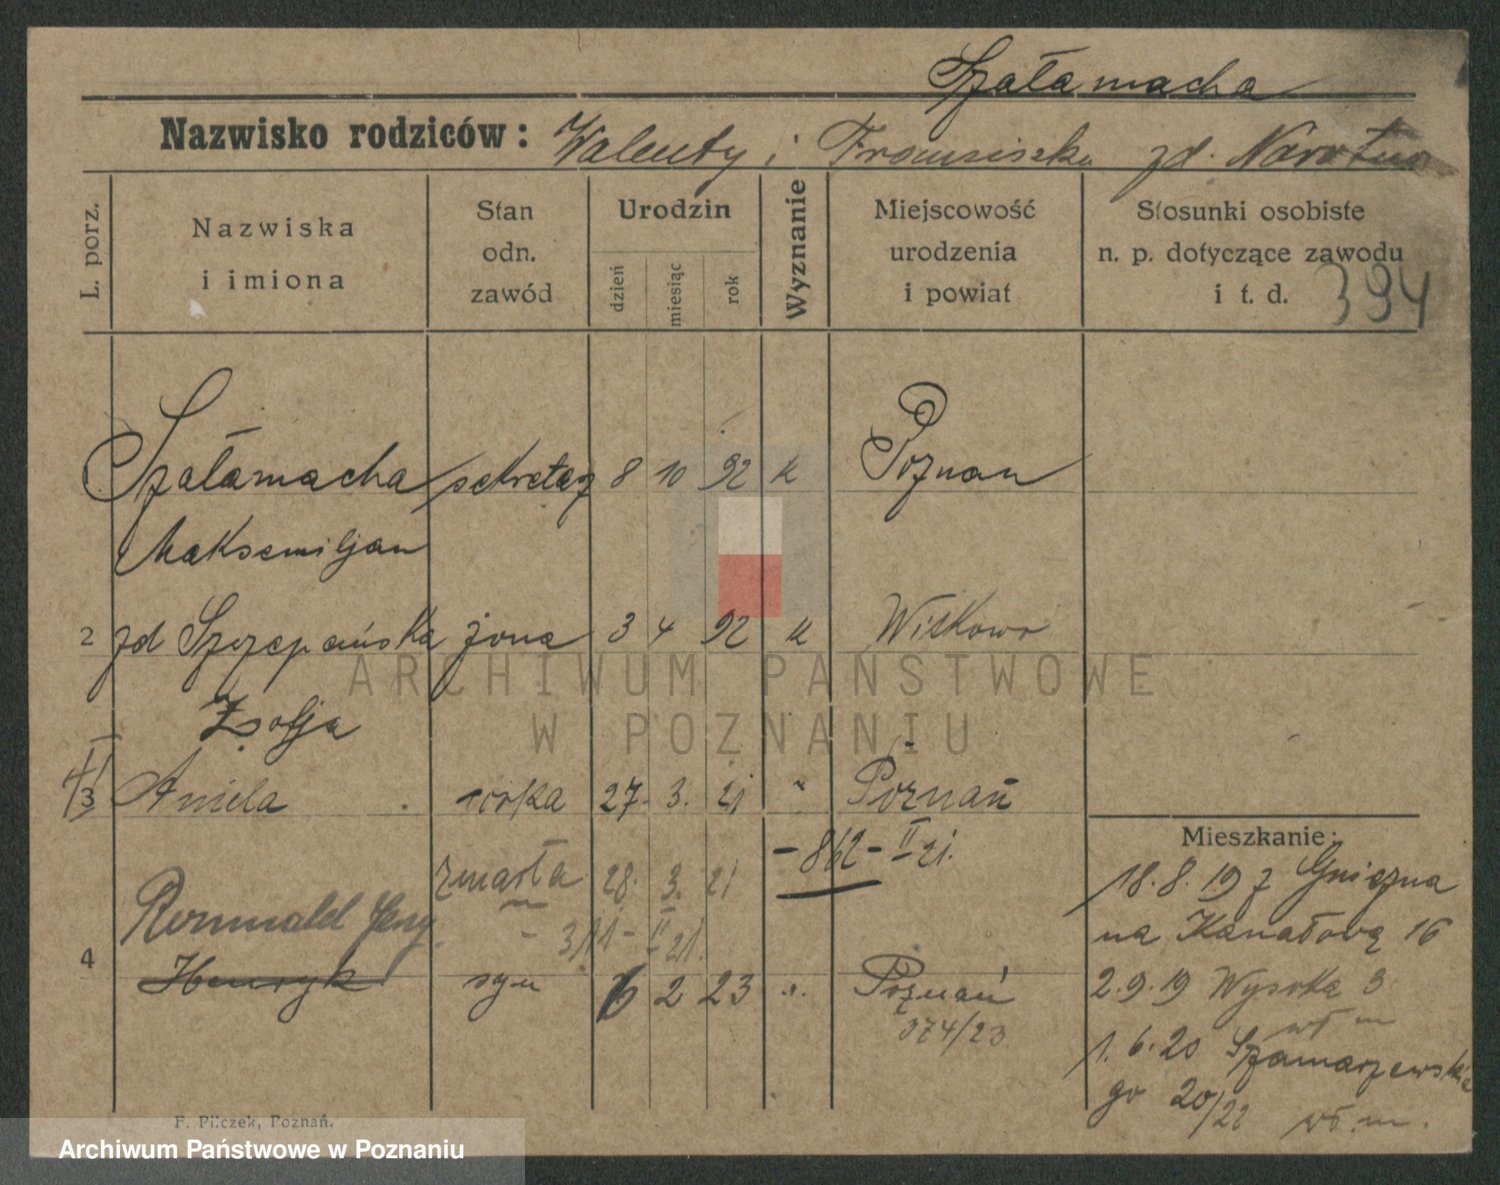 Szałamacha
Nazwisko rodziców: Walenty i Franciszka zd.
L. porz.
Nazwiska
i imiona
Stan
odn.
zawód
Urodzin
dzień
miesiąc
rok
Wyznanie
Miejscowość
urodzenia
i powiat
Stosunki osobiste
n. p. dotyczące zawodu
i t. d.
394
Szałamacha sekretarz 8 10 92 k Poznan
Maksemiljan
2 zd Szczepańska żona 3 4 92 k Witkowo
Zsofja
3 Aniela corka 27. 3. 21 " Poznań
- 862 - II 21.
zmarła 28. 3. 21
- 311 - II 21.
Romuald Jerzy
4 Henryk syn 6 2 23 ". Poznań
374/23
Mieszkanie:
18.8.19 z Gniezna
na Kanałową 16
2.9.19 Wysoka 3
wł m
1.6.20 Szamarzewskie
go 20/22 wł. m.
F. Pilczek, Poznań.
ARCHIWUM PAŃSTWOWE
W POZNANIU
Archiwum Państwowe w Poznaniu